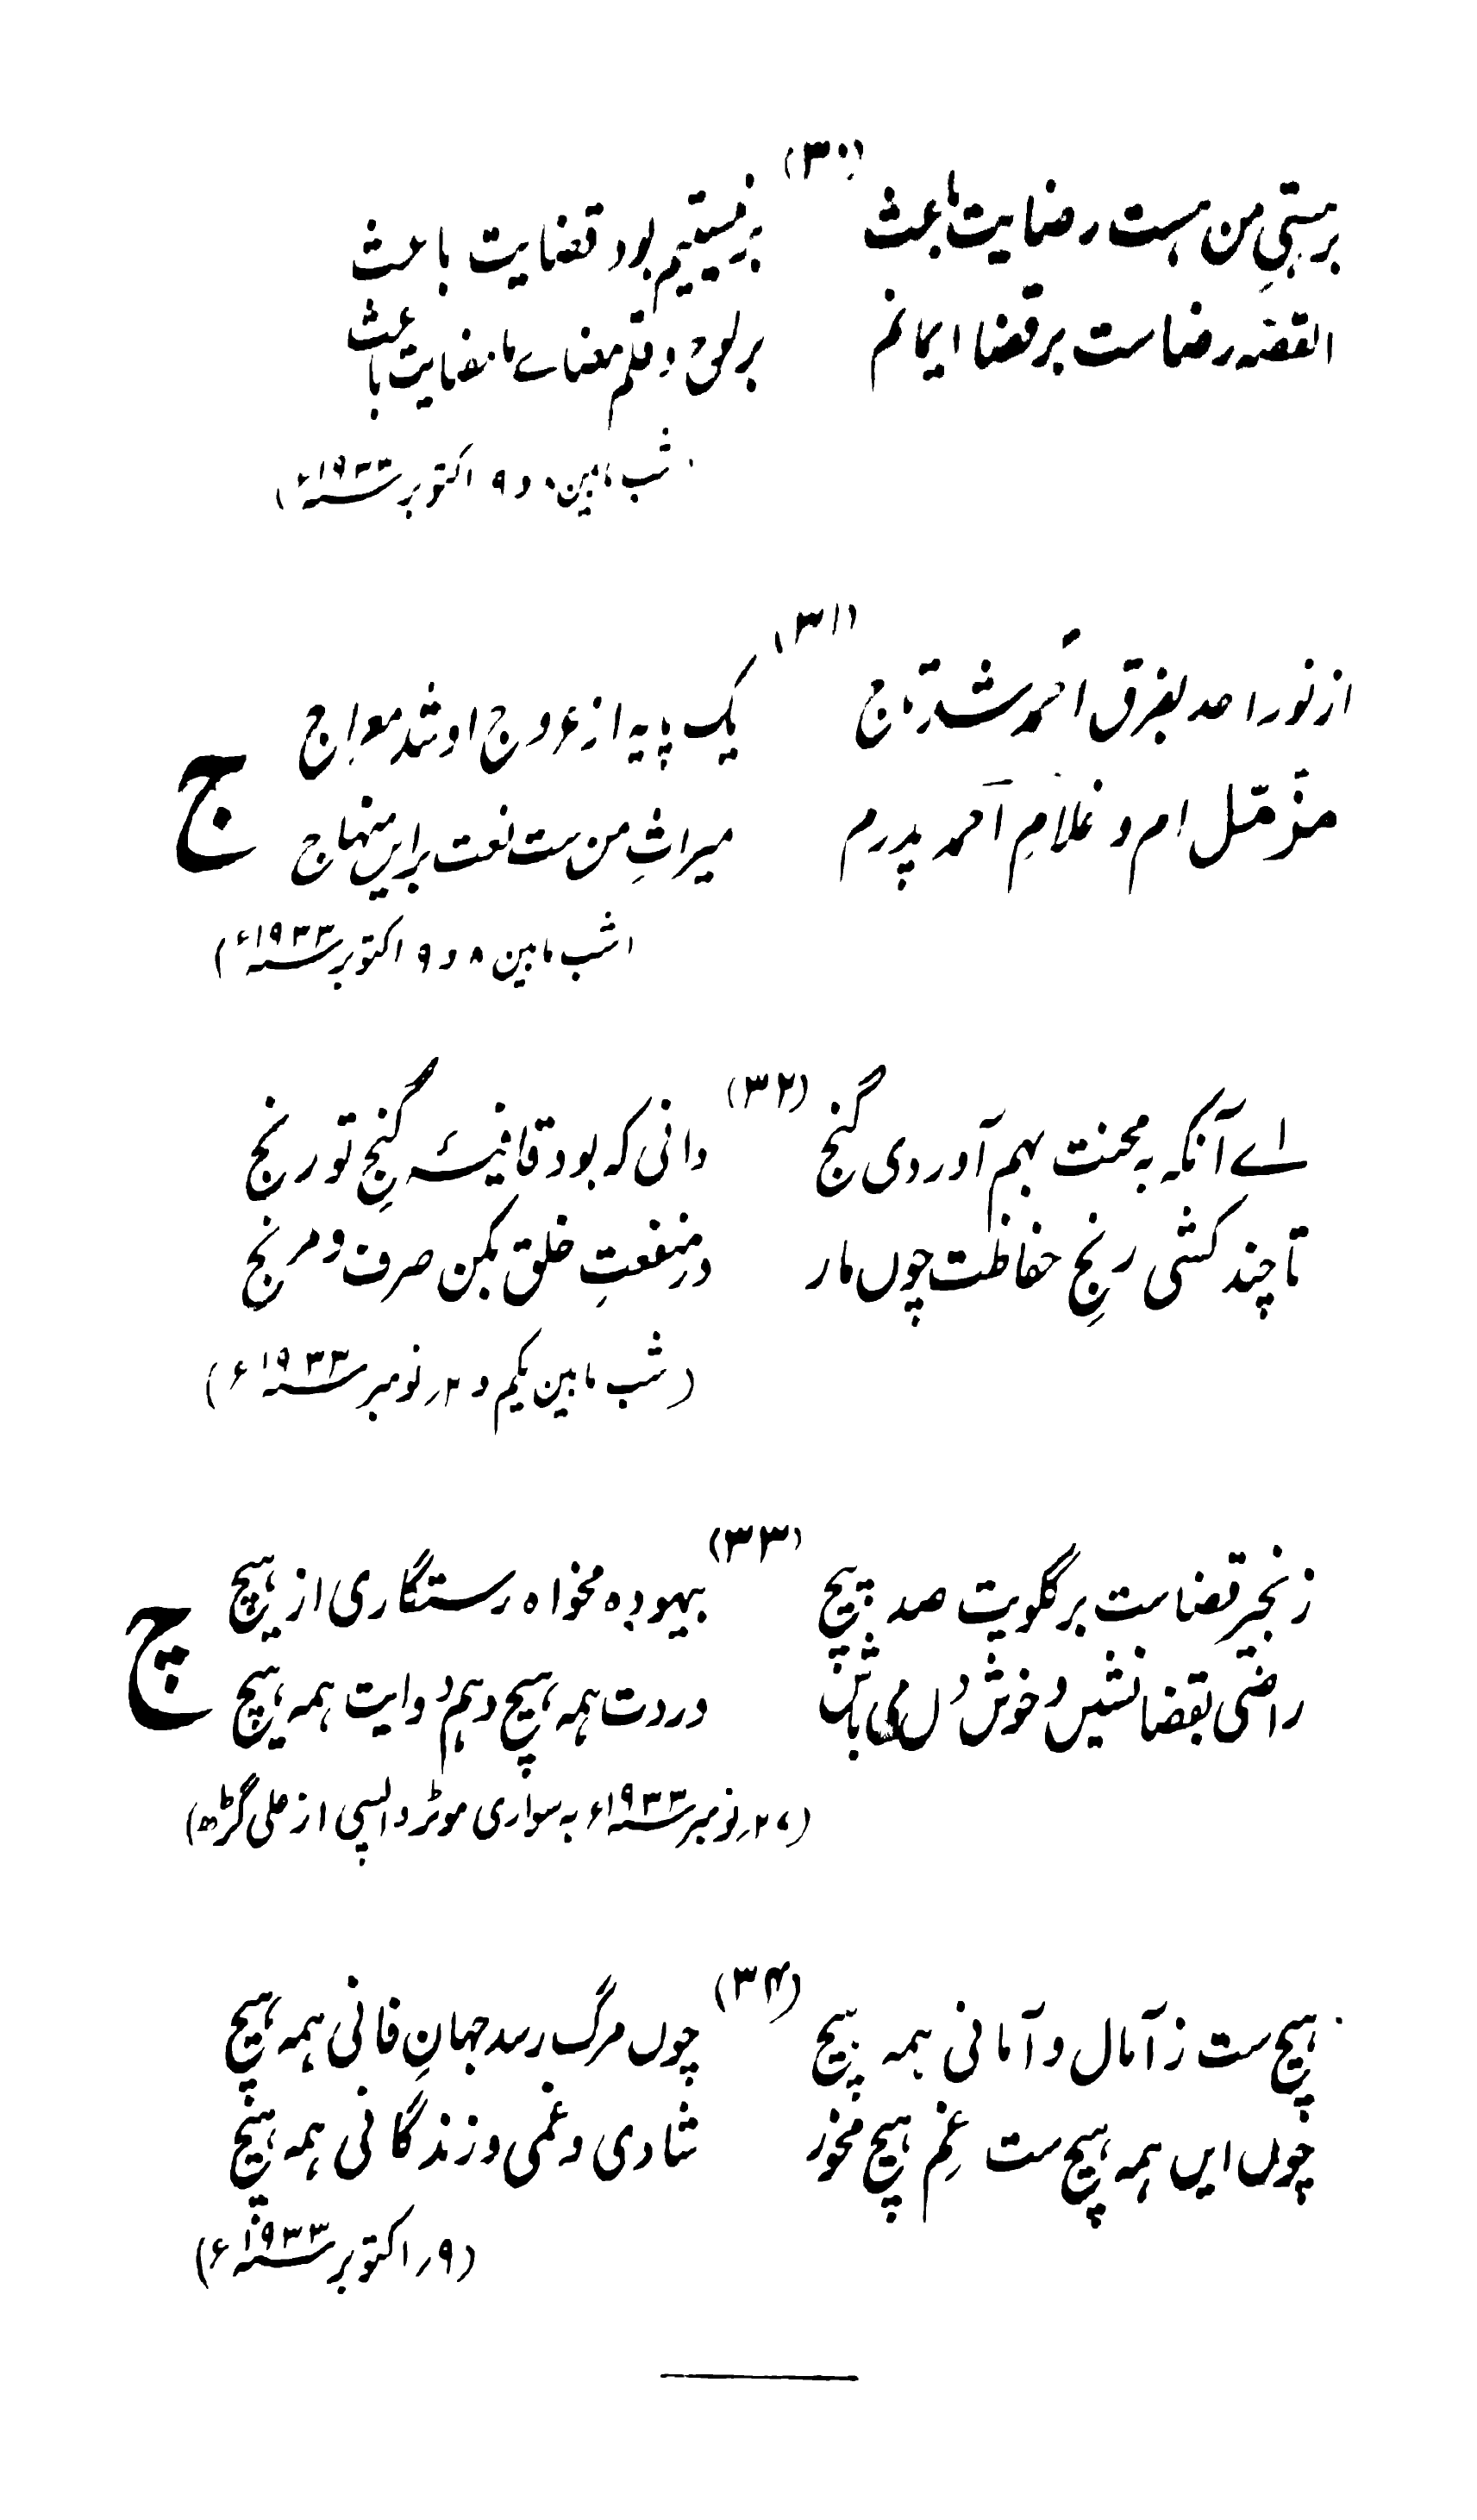 (۳۰)
بر ہستیِ من ہست رضایت باعث
بر نیستیم بود قضایت باعث
القصّہ رضاست بر قضا ایمانم
(شب مابین ۸ و ۹ اکتوبر ۱۹۳۳ء)
(۳۱)
از نورِ احد بفرقِ احمد شد تاج
یک پایہ از عروجِ او شد معراج
متوسّل ام و غلامِ احمد پدرم
میراثِ من ست نعت را بین محتاج
ج
(شب مابین ۸ و ۹ اکتوبر ۱۹۳۳ء)
(۳۲)
اے آنکہ بمحنت بہم آوردی گنج
دانی کہ بود قافیۂ گنجِ تو رنج
تا چند کشی رنجِ حفاظت چوں مار
در منفعتِ خلق بکن صرف و مرنج
(شب مابین یکم و ۲ نومبر ۱۹۳۳ء)
(۳۳)
زنجیرِ قضاست بر گلویت صد پیچ
بیہودہ مخواہ رستگاری از پیچ
راضی بقضا نشین و خوش دل می باش
دردت ہمہ ہیچ و ہم دوایت ہمہ ہیچ
چ
(۲ نومبر ۱۹۳۳ء بہ سواری موٹر واپسی از علی گڑھ)
(۳۴)
ہیچ ست ز آمال و آمانی ہمہ ہیچ
چوں مرگ رسد جہانِ فانی ہمہ ہیچ
چوں ایں ہمہ ہیچ ست غمِ ہیچ مخور
شادی و غمی و زندگانی ہمہ ہیچ
(۹ اکتوبر ۱۹۳۳ء)